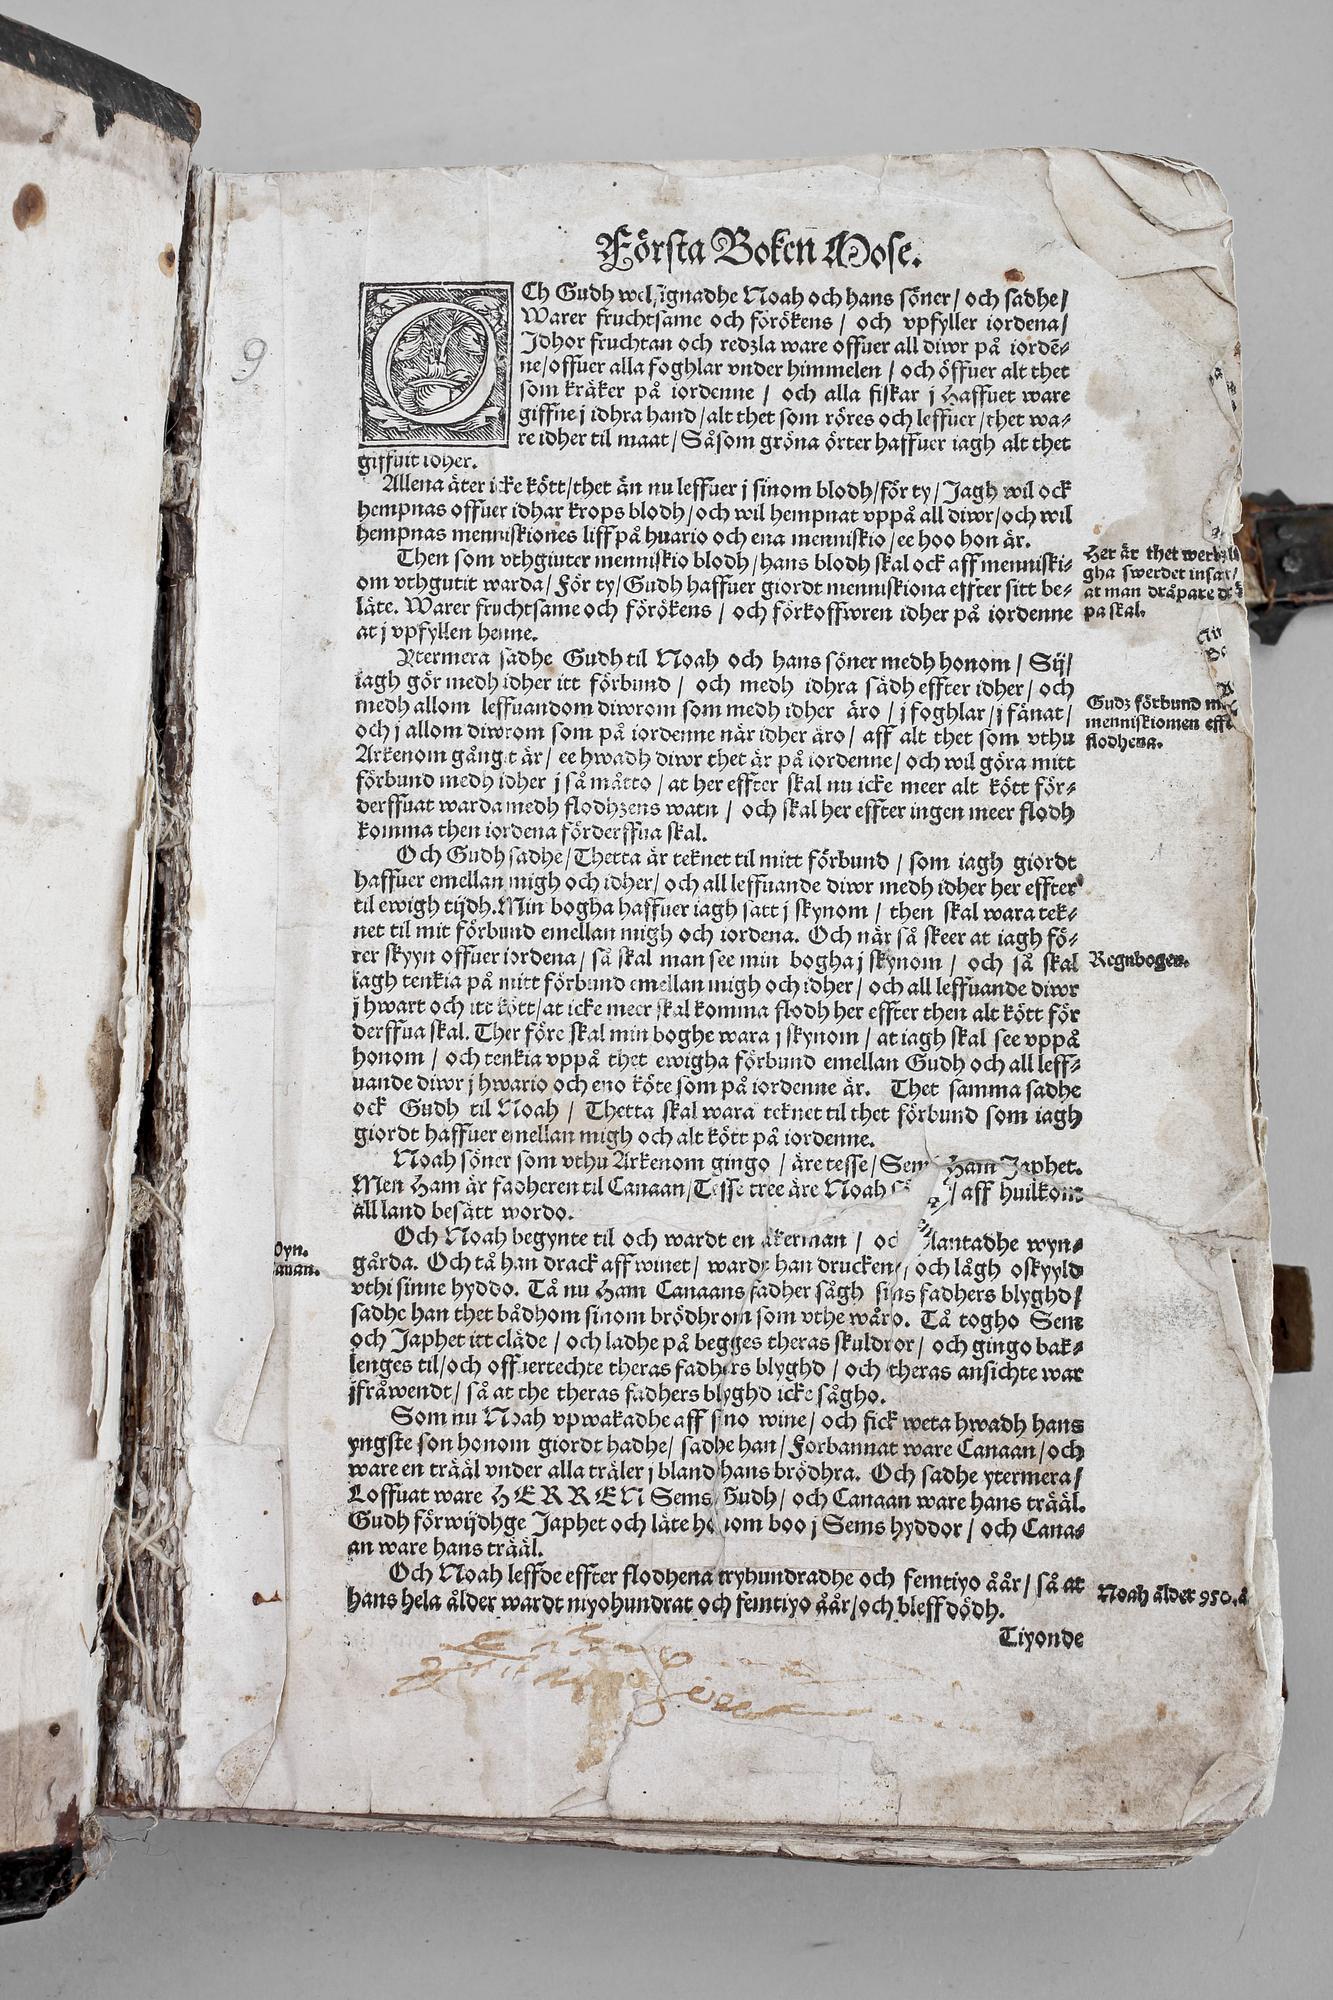 Första Boken Mose.
9
OCh Gudh welsignadhe Noah och hans söner / och sadhe /
Warer fruchtsame och förökens / och vpfyller iordena /
Idhor fruchtan och redzla ware offuer all diwr på iordē-
ne / offuer alla foghlar vnder himmelen / och offuer alt thet
som kräker på iordenne / och alla fiskar j Haffuet ware
giffne j idhra hand / alt thet som röres och leffuer / thet wa-
re idher til maat / Såsom gröna örter haffuer iagh alt thet
giffuit idher.
Allena äter icke kött / thet än nu leffuer j sinom blodh / för ty / Jagh wil ock
hempnas offuer idhar krops blodh / och wil hempnat vppå all diwr / och wil
hempnas menniskiones liff på huario och ena menniskio / ee hoo hon är.
Then som vthgiuter menniskio blodh / hans blodh skal ock aff menniski-
om vthgutit warda / För ty / Gudh haffuer giordt menniskiona effter sitt be-
läte. Warer fruchtsame och förökens / och förkoffwren idher på iordenne
at j vpfyllen henne.
Her är thet werdzli
gha swerdet insat /
at man dräpare
pa skal.
Ytermera sadhe Gudh til Noah och hans söner medh honom / Sij /
iagh gör medh idher itt förbund / och medh idhra sädh effter idher / och
medh allom leffuandom diwrom som medh idher äro / j foghlar / j fänat /
och j allom diwrom som på iordenne när idher äro / aff alt thet som vthu
Arkenom gånget är / ee hwadh diwr thet är på iordenne / och wil göra mitt
förbund medh idher j så måtto / at her effter skal nu icke meer alt kött för-
derffuat warda medh flodhzens watn / och skal her effter ingen meer flodh
komma then iordena förderffua skal.
Gudz förbund m
menniskiomen efft
flodhena.
Och Gudh sadhe / Thetta är teknet til mitt förbund / som iagh giordt
haffuer emellan migh och idher / och all leffuande diwr medh idher her effter
til ewigh tijdh. Min bogha haffuer iagh satt j skynom / then skal wara tek-
net til mit förbund emellan migh och iordena. Och när så skeer at iagh fö-
rer skyyn offuer iordena / så skal man see min bogha j skynom / och så skal
iagh tenkia på mitt förbund emellan migh och idher / och all leffuande diwr
j hwart och itt kött / at icke meer skal komma flodh her effter then alt kött för
derffua skal. Ther före skal min boghe wara j skynom / at iagh skal see vppå
honom / och tenkia vppå thet ewigha förbund emellan Gudh och all leff-
uande diwr j hwario och eno köte som på iordenne är. Thet samma sadhe
ock Gudh til Noah / Thetta skal wara teknet til thet förbund som iagh
giordt haffuer emellan migh och alt kött på iordenne.
Regnbogen.
Noah söner som vthu Arkenom gingo / äre tesse / Sem Ham Japhet.
Men Ham är fadheren til Canaan / Tesse tree äre Noah / aff huilkom
all land besätt wordo.
Och Noah begynte til och wardt en åkerman / och plantadhe wyn-
gårda. Och tå han drack aff winet / wardt han drucken / och lågh oskyyld
vthi sinne hyddo. Tå nu Ham Canaans fadher sågh sins fadhers blyghd /
sadhe han thet bådhom sinom brödhrom som vthe wåro. Tå togho Sem
och Japhet itt cläde / och ladhe på begges theras skuldror / och gingo bak-
lenges til / och offuertechte theras fadhers blyghd / och theras ansichte war
jfråwendt / så at the theras fadhers blyghd icke sågho.
oyn.
anan.
Som nu Noah vpwakadhe aff sino wine / och fick weta hwadh hans
yngste son honom giordt hadhe / sadhe han / Forbannat ware Canaan / och
ware en trääl vnder alla träler j bland hans brödhra. Och sadhe ytermera /
Loffuat ware HERREN Sems Gudh / och Canaan ware hans trääl.
Gudh förwijdhge Japhet och låte honom boo j Sems hyddor / och Cana-
an ware hans trääl.
Och Noah leffde effter flodhena tryhundradhe och femtiyo åår / så at
hans hela ålder wardt niyohundrat och femtiyo åår / och bleff dödh.
Noah ålder 950. å
Tiyonde